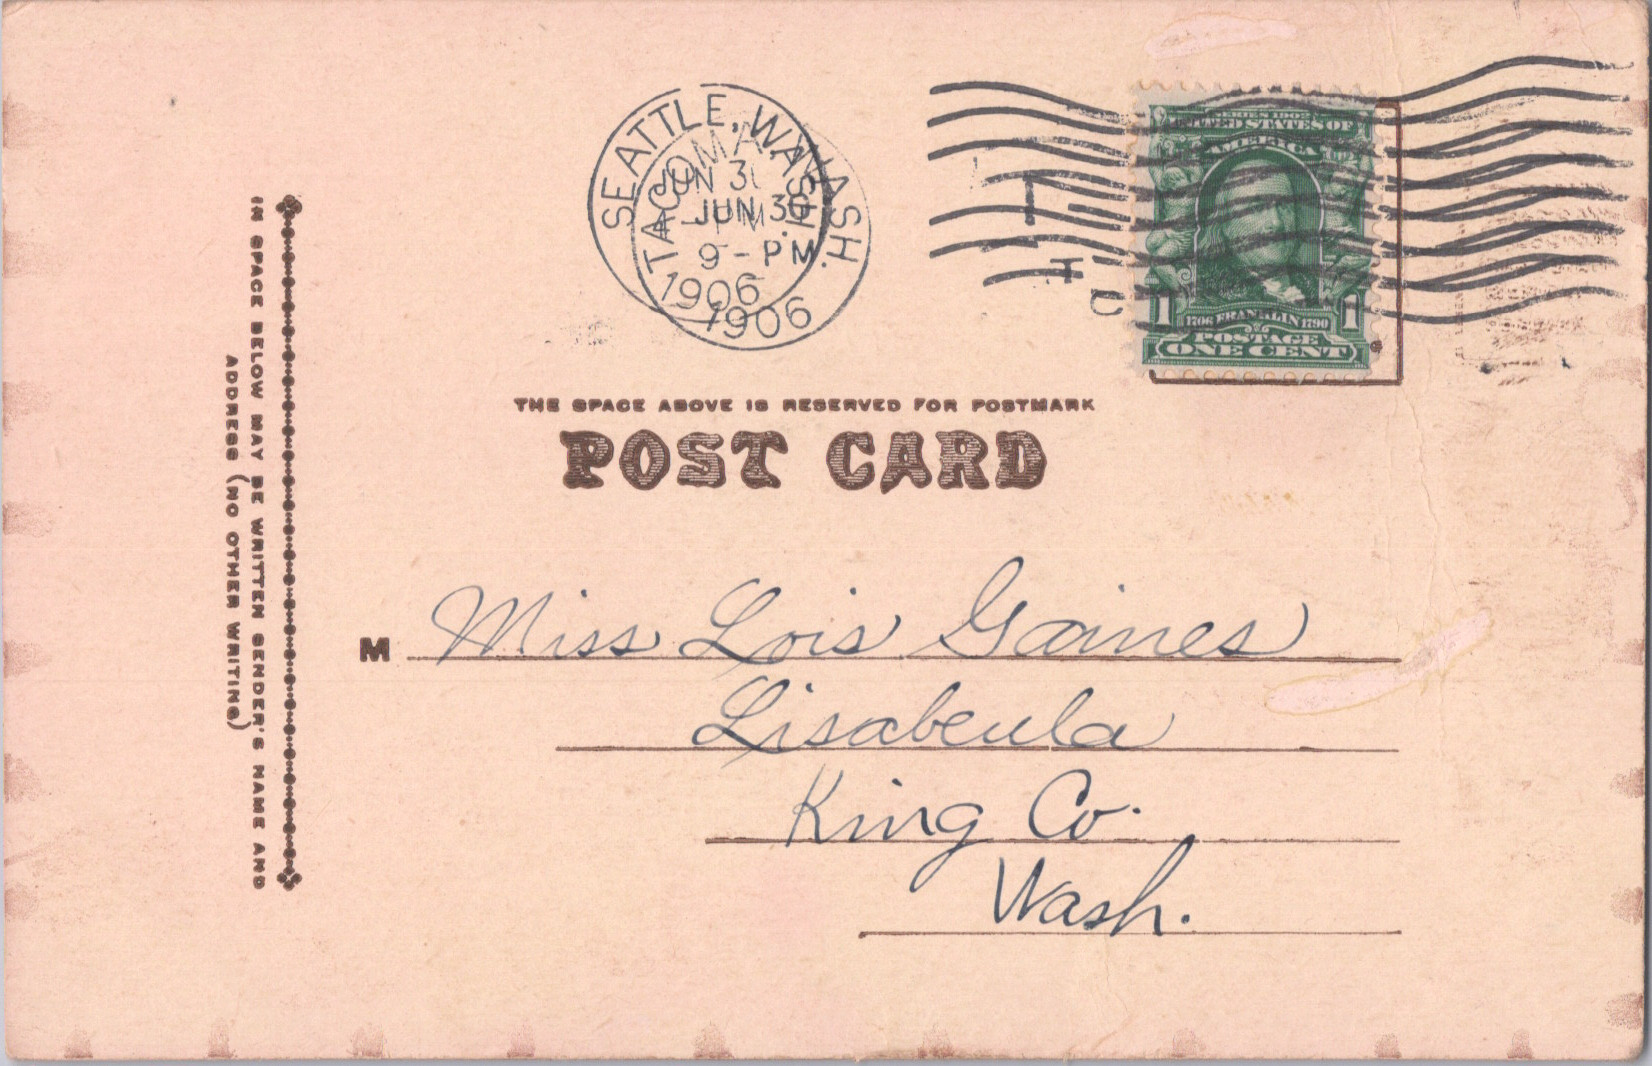 SEATTLE, WASH.
TACOMA, WASH.
JUN 30
JUN 30
9 - P M.
1906
1906
SERIES 1902
UNITED STATES OF
AMERICA
1 1
1706 FRANKLIN 1790
POSTAGE
ONE CENT
THE SPACE ABOVE IS RESERVED FOR POSTMARK
POST CARD
IN SPACE BELOW MAY BE WRITTEN SENDER'S NAME AND
ADDRESS (NO OTHER WRITING)
M Miss Lois Gaines
Lisabeula
King Co.
Wash.